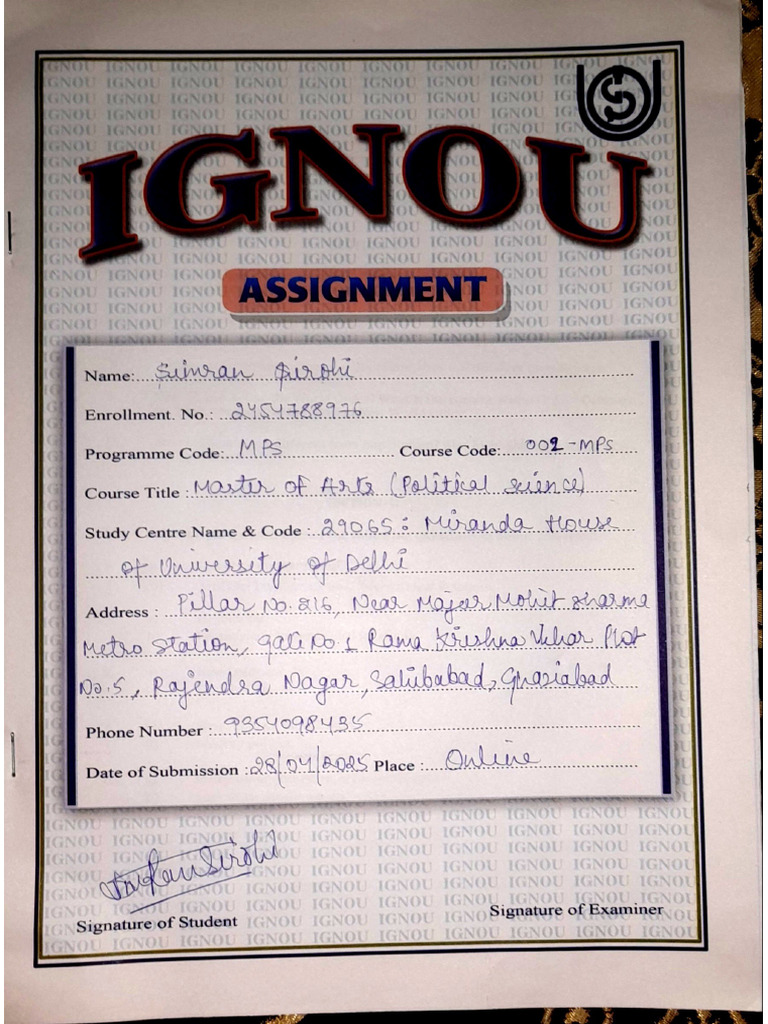 IGNOU
ASSIGNMENT
Name: Simran Sirohi
Enrollment. No.: 2454788976
Programme Code: MPS Course Code: 002-MPS
Course Title : Master of Arts (Political Science)
Study Centre Name & Code : 29065: Miranda House
of University of Delhi
Address : Pillar No. 216, Near Major Mohit Sharma
Metro Station, Gali No 1 Rama Krishna Vihar Plot
No. 5, Rajendra Nagar, Sahibabad, Ghaziabad
Phone Number : 9354098435
Date of Submission : 28/04/2025 Place : Online
Simran Sirohi
Signature of Student Signature of Examiner